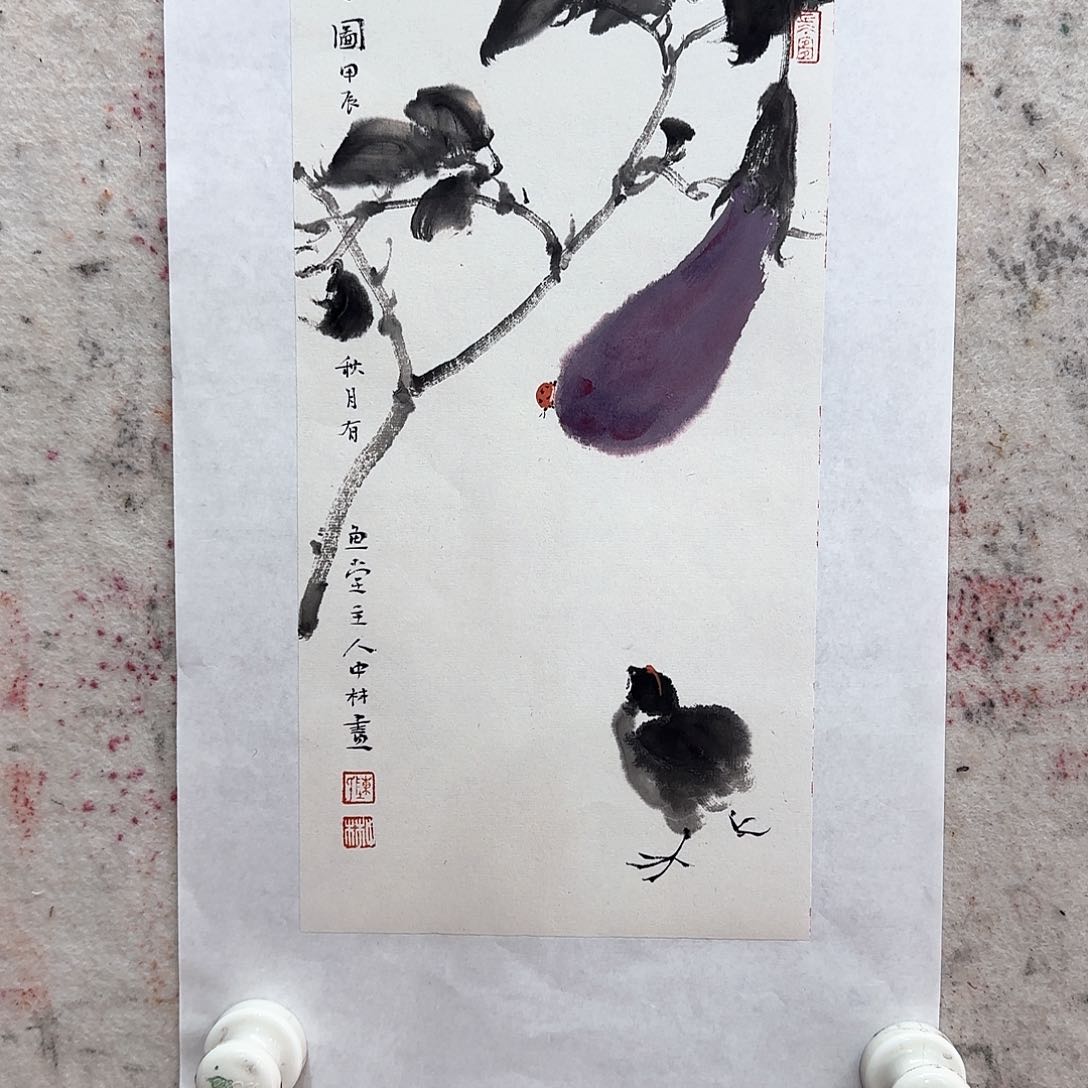 圖甲辰
秋月有
魚堂主人中林畫